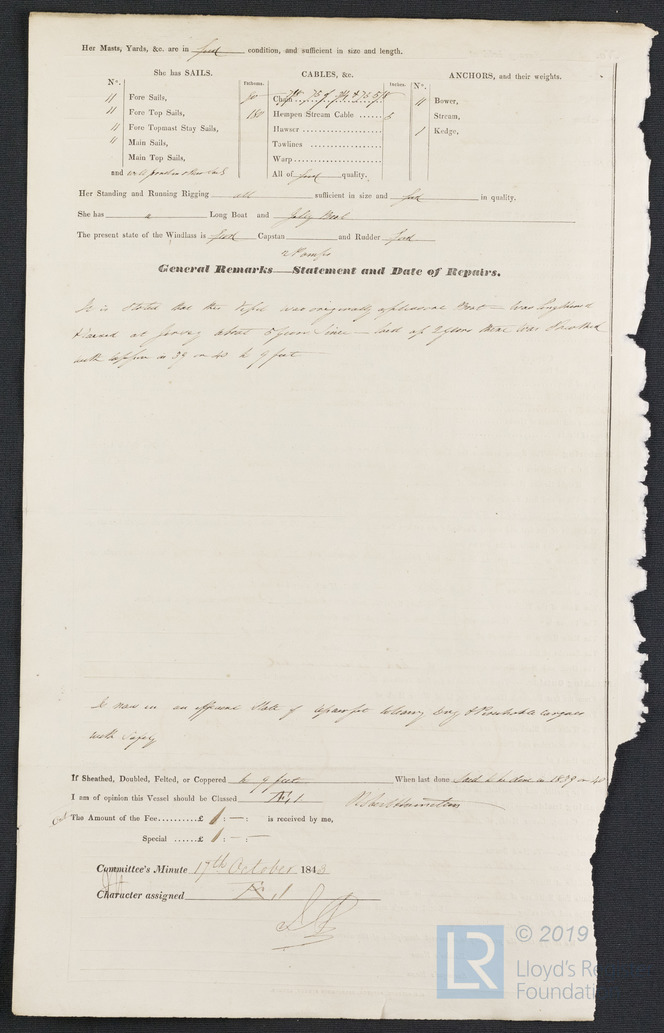 Her Masts, Yards, &c. are in good condition, and sufficient in size and length.
She has SAILS.
CABLES, &c.
ANCHORS, and their weights.
N°.
Fathoms.
Inches.
N°.
Fore Sails,
Chain
Bower,
Fore Top Sails,
180 Hempen Stream Cable ...... 5
Stream,
Fore Topmast Stay Sails,
Hawser
1 Kedge,
Main Sails,
Towlines
Main Top Sails,
Warp
and well found in other Sails
All of good quality.
Her Standing and Running Rigging all sufficient in size and good in quality.
She has a Long Boat and Jolly Boat
The present state of the Windlass is good Capstan and Rudder good
2 Pumps
General Remarks—Statement and Date of Repairs.
It is Stated that this Vessel was originally a Boat – Was lengthened
& raised at Jersey about 5 years Since – laid up 2 years there Was Sheathed
with Copper in 39 or 40 to 9 feet
Is now in an efficient State of repair fit to Carry Dry & Perishable Cargoes
with Safety
If Sheathed, Doubled, Felted, or Coppered to 9 feet When last done Said to be done in 1839 or 40
I am of opinion this Vessel should be Classed Æ 1
The Amount of the Fee..........£ 1 : — : is received by me,
Special ......£ 1 : - : -
Committee's Minute 17th October 1843
Character assigned Æ 1
LR
© 2019
Lloyd's Re
Foundatio